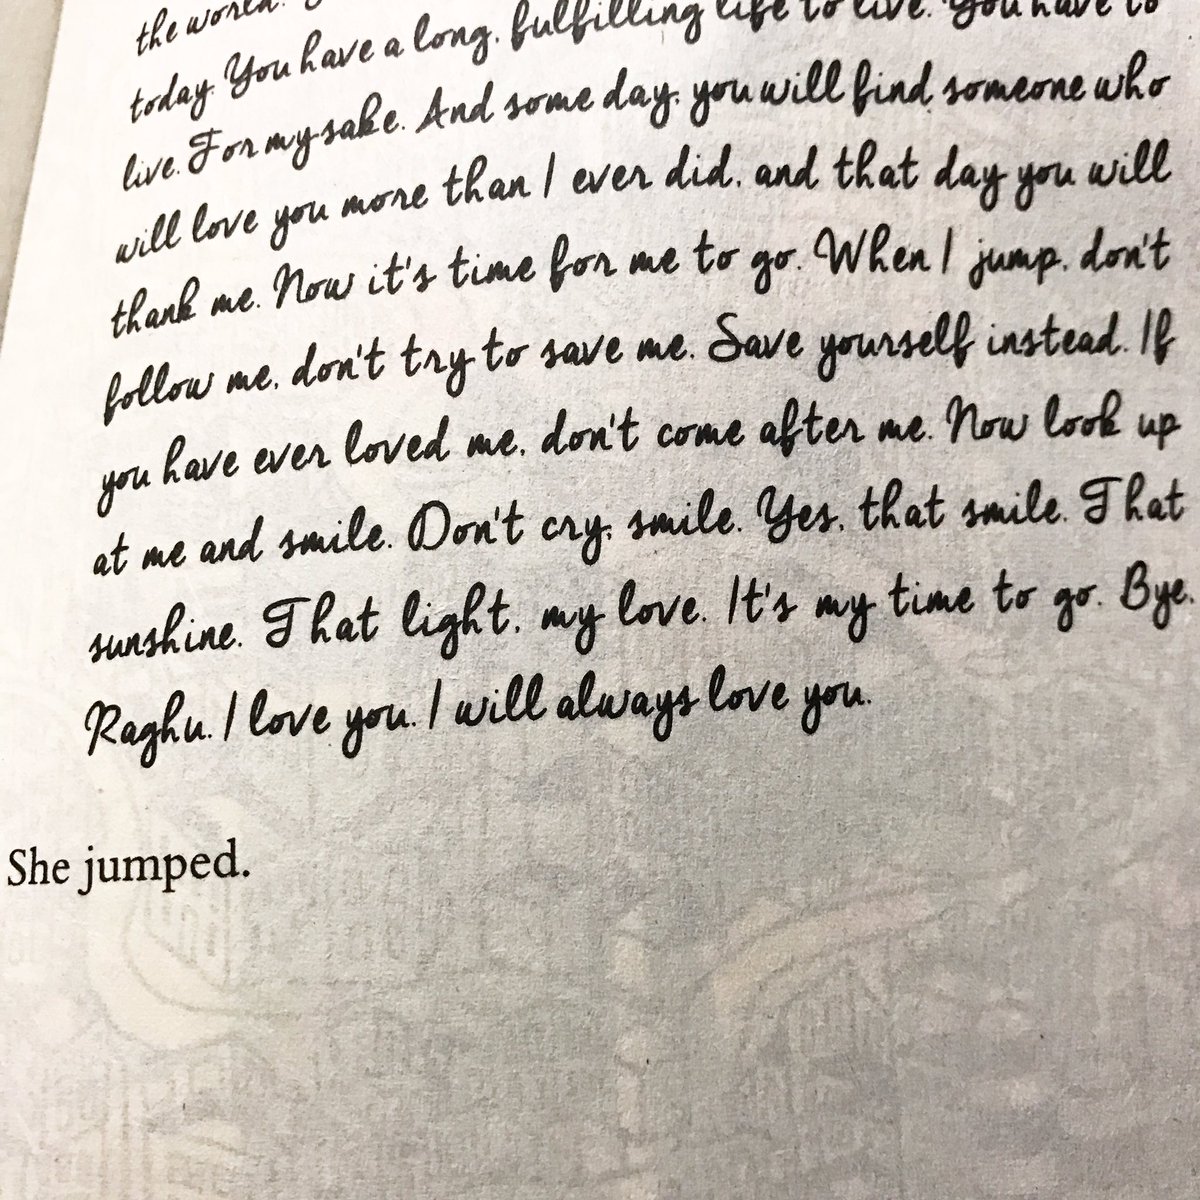 the world.
today. You have a long, fulfilling life to live. You have to
live. For my sake. And some day, you will find someone who
will love you more than I ever did, and that day you will
thank me. Now it's time for me to go. When I jump, don't
follow me, don't try to save me. Save yourself instead. If
you have ever loved me, don't come after me. Now look up
at me and smile. Don't cry, smile. Yes, that smile. That
sunshine. That light, my love. It's my time to go. Bye,
Raghu. I love you. I will always love you.
She jumped.